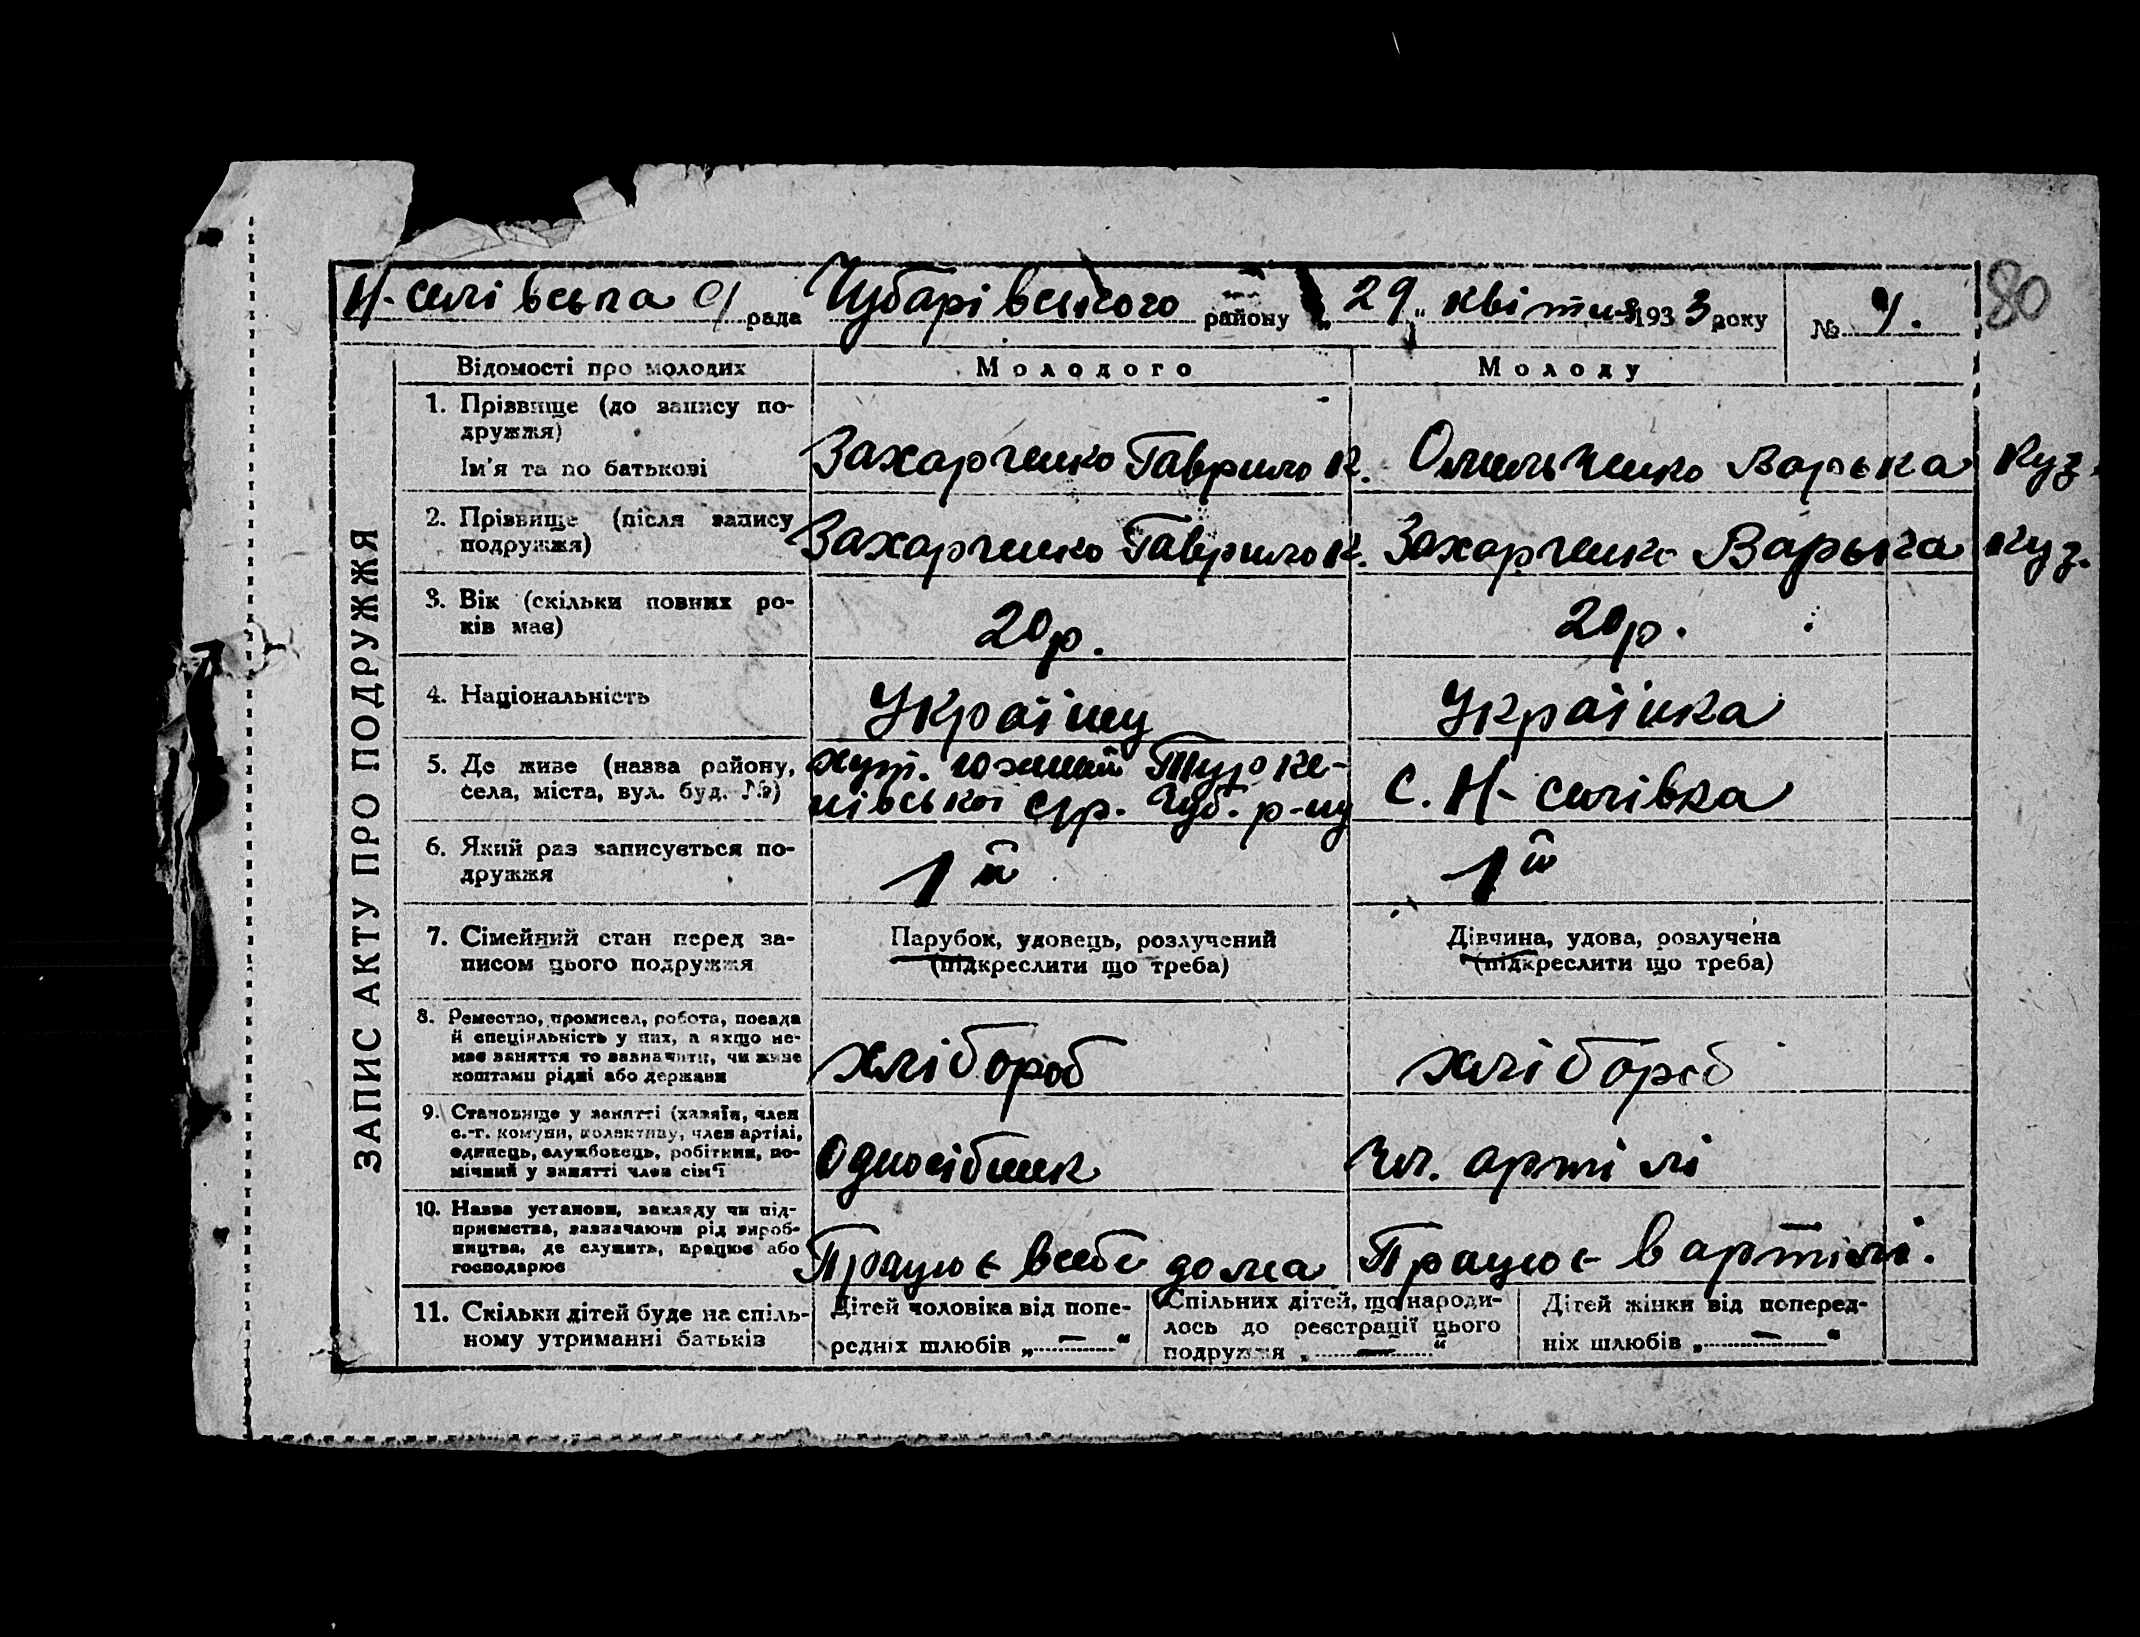 80
Н-селівська С/рада Чубарівського району „29„ квітня 1933 року № 4.
ЗАПИС АКТУ ПРО ПОДРУЖЖЯ
Відомості про молодих Молодого Молоду
1. Прізвище (до запису по-
дружжя)
Ім'я та по батькові Захарченко Гаврило К. Омельченко Варька Куз.
2. Прізвище (після запису
подружжя) Захарченко Гаврило К. Захарченко Варька Куз.
3. Вік (скільки повних ро-
ків має) 20р. 20р.
4. Національність Українц Українка
5. Де живе (назва району,
села, міста, вул. буд. №)
хут. южний
нівської с/р. Чуб. р-ну
С. Н-селівка
6. Який раз записується по-
дружжя 1й 1й
7. Сімейний стан перед за-
писом цього подружжя
Парубок, удовець, розлучений
(підкреслити що треба)
Дівчина, удова, розлучена
(підкреслити що треба)
8. Ремество, промисел, робота, посада
й спеціяльність у них, а якщо не-
має заняття то зазначити, чи живе
коштами рідні або держави
хлібороб хлібороб
9. Становище у занятті (хазяїн, член
с.-г. комуни, колективу, член артілі,
одинець, службовець, робітник, по-
мічний у занятті член сім'ї
Одноосібник Чл. артілі
10. Назва установи, закладу чи під-
приємства, зазначаючи рід вироб-
ництва, де служить, працює або
господарює
Працює всебе дома Працює в артілі.
11. Скільки дітей буде на спіль-
ному утриманні батьків
Дітей чоловіка від попе-
редніх шлюбів „ — “
Спільних дітей, що народи-
лось до реєстрації цього
подружжя „ — “
Дітей жінки від поперед-
ніх шлюбів „ — “